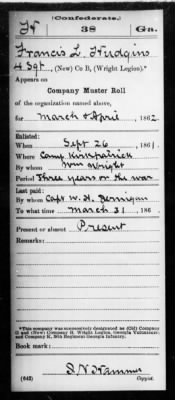 (Confederate.)
H 38 Ga.
Francis L. Hudgins
4 Sgt., (New) Co B, (Wright Legion).*
Appears on
Company Muster Roll
of the organization named above,
for March & April, 1862.
Enlisted:
When Sept 26, 1861.
Where Camp Kirkpatrick
By whom Wm Wright
Period Three years or the war
Last paid:
By whom Capt W. H.
To what time March 31, 186
Present or absent Present
Remarks:
*This company was successively designated as (Old) Company
G and (New) Company B, Wright Legion, Georgia Volunteers,
and Company H, 38th Regiment Georgia Infantry.
Book mark:
S. N. Hammer
(642) Copyist.